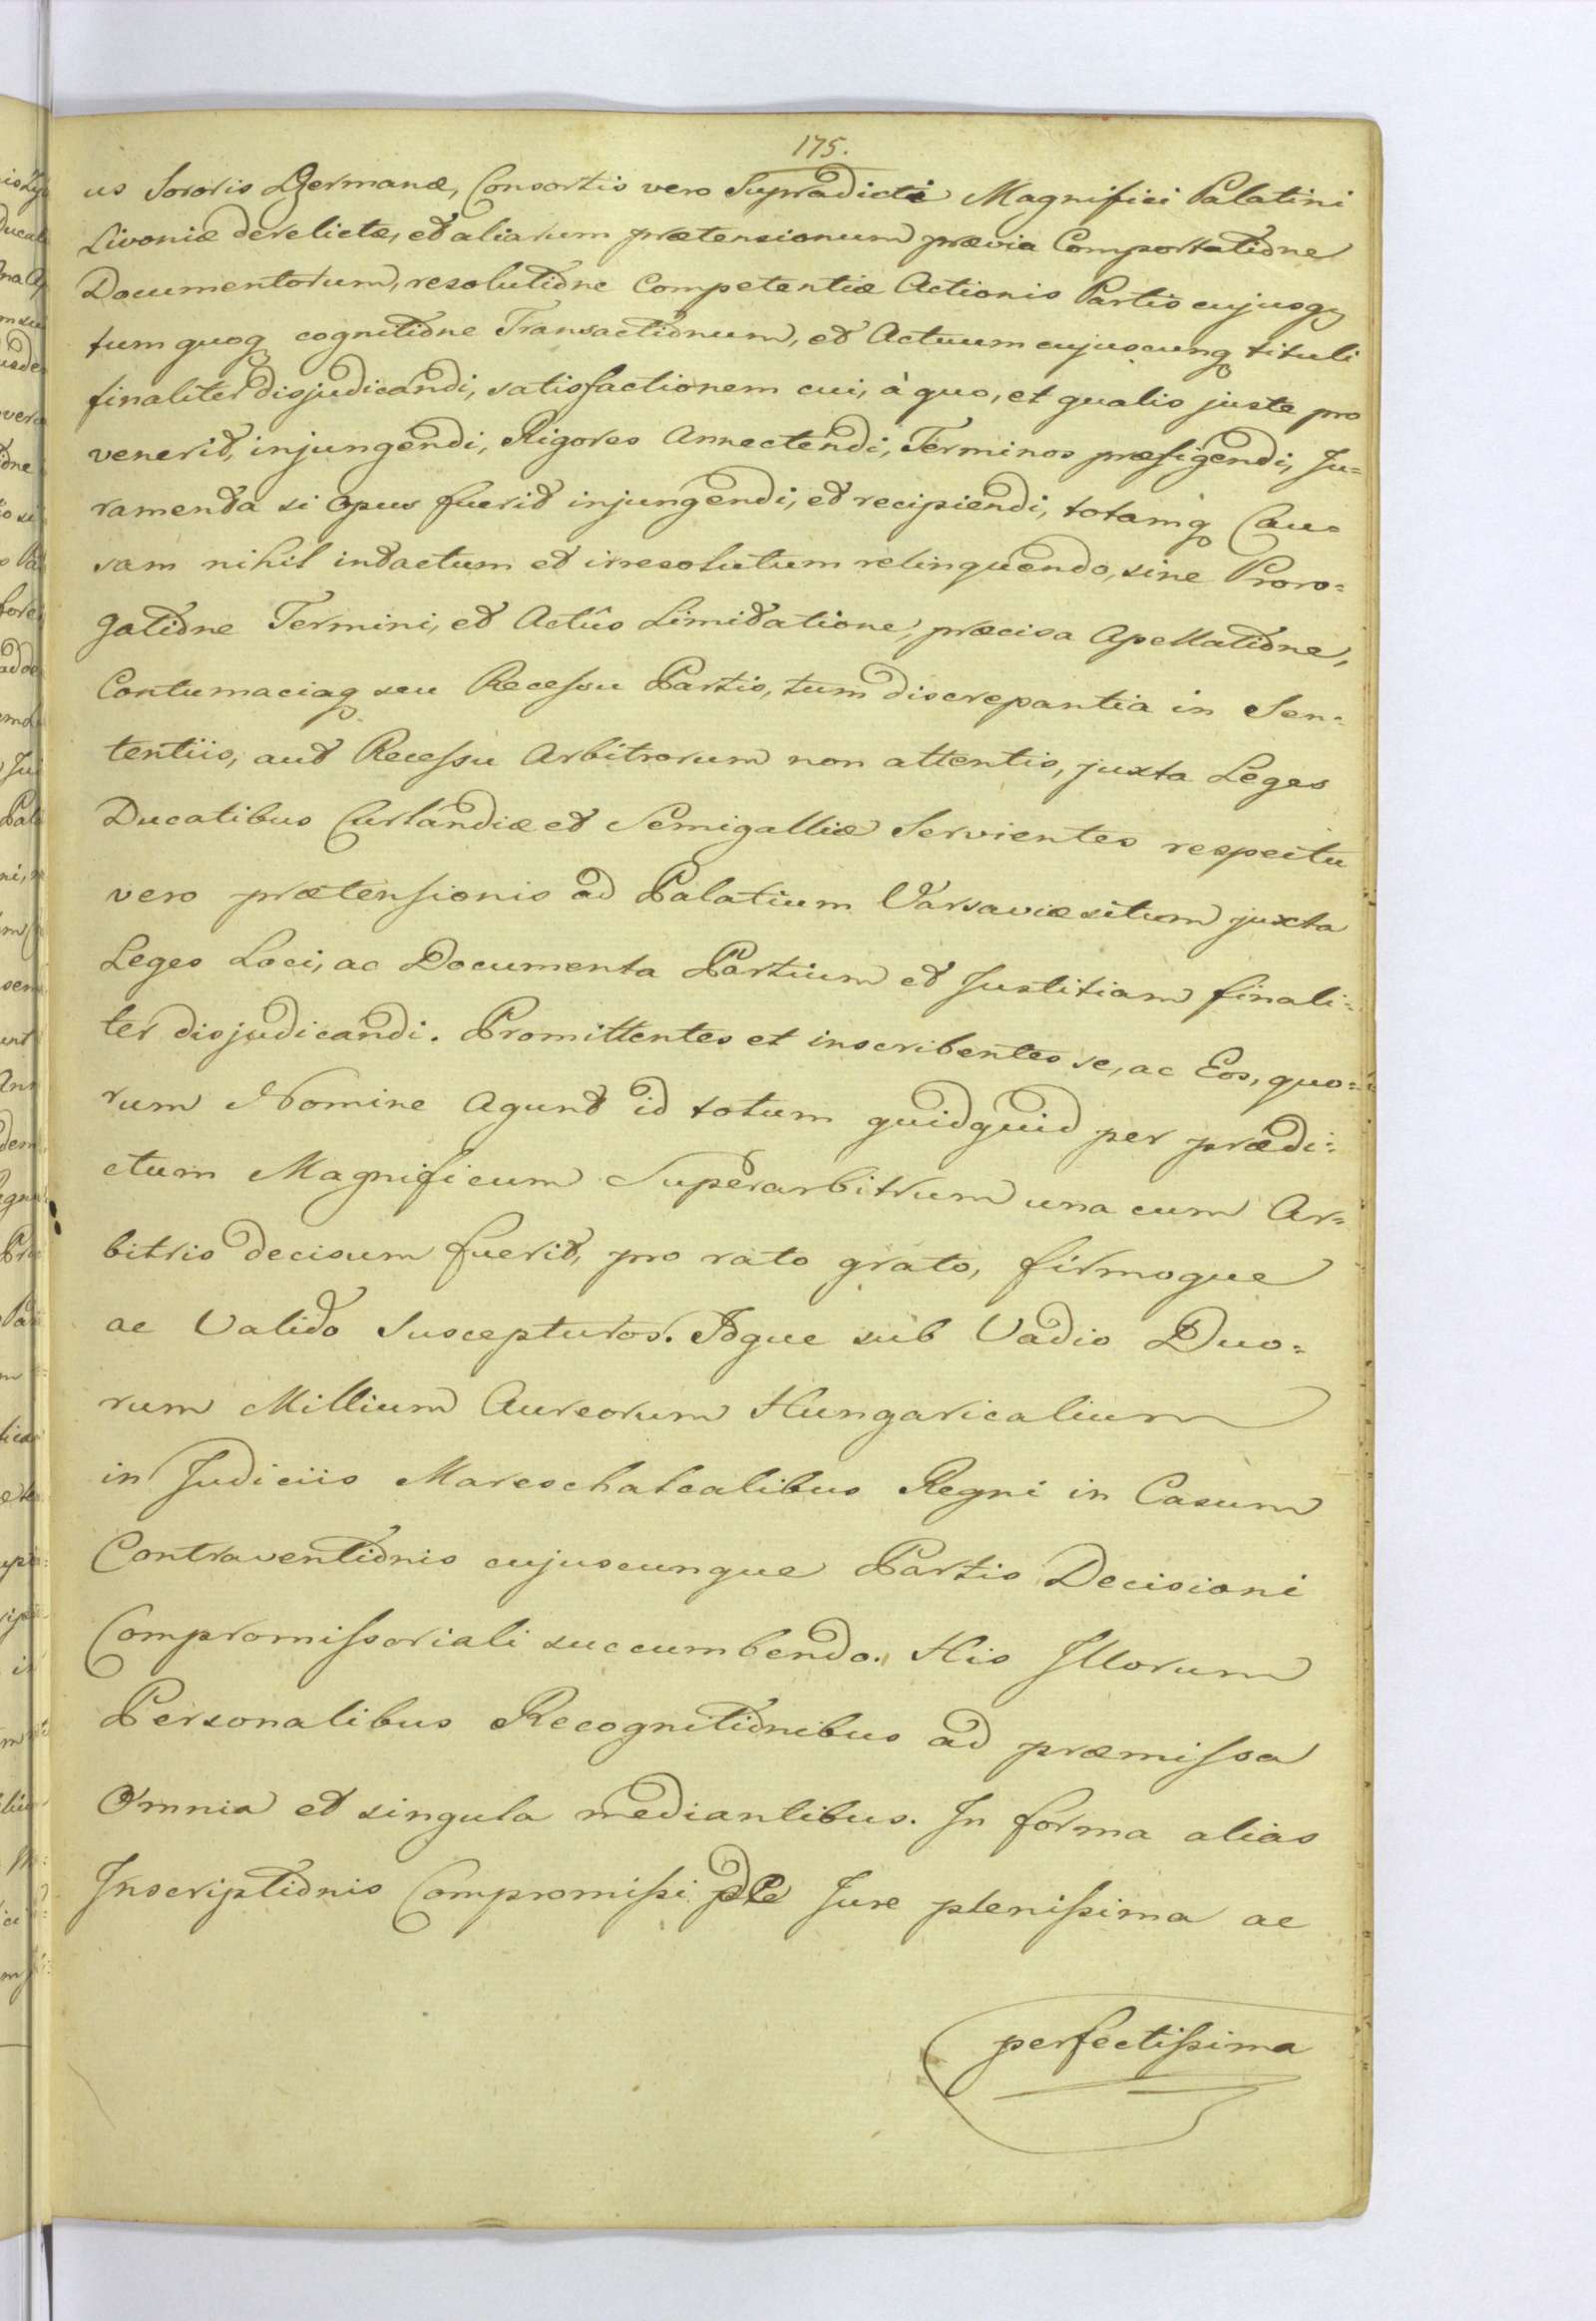 175.
us Sororis Germanæ, Consortis vero Supradicti Magnifici Palatini
Livoniæ derelictæ, et aliarum prætensionum prævia Comportatione
Documentorum, resolutione Competentiæ Actionis Partis cujusq
tum quoq cognitione Transactionum, et Actuum cujuscunq tituli
finaliter disjudicandi, satisfactionem cui, à quo, et qualis juste pro
venerit, injungendi, Rigores Annectendi, Terminos præfigendi, Ju=
ramenta si opus fuerit injungendi, et recipiendi, totamq Cau=
sam nihil intactum et irresolutum relinquendo, sine Proro=
gatione Termini, et Actûs Limitatione, præcisa Apellatione,
Contumaciaq seu Recessu Partis, tum discrepantia in Sen=
tentiis, aut Recessu Arbitrorum non attentis, juxta Leges
Ducatibus Curlandiæ et Semigalliæ Servientes respectu
vero prætensionis ad Palatium Varsaviæ situm juxta
Leges Loci, ac Documenta Partium et Justitiam finali=
ter disjudicandi. Promittentes et inscribentes se, ac Eos, quo=
rum Nomine Agunt id totum quidquid per prædi=
ctum Magnificum Superarbitrum una cum Ar=
bitris decisum fuerit, pro rato grato, firmoque
ac Valido Suscepturos. Idque sub Vadio Duo=
rum Millium Aureorum Hungaricalium
in Judiciis Mareschalcalibus Regni in Casum
Contraventionis cujuscunque Partis Decisioni
Compromissoriali succumbendo. His Illorum
Personalibus Recognitionibus ad præmissa
Omnia et singula mediantibus. In forma alias
Inscriptionis Compromissi de Jure plenissima ac
perfectissima